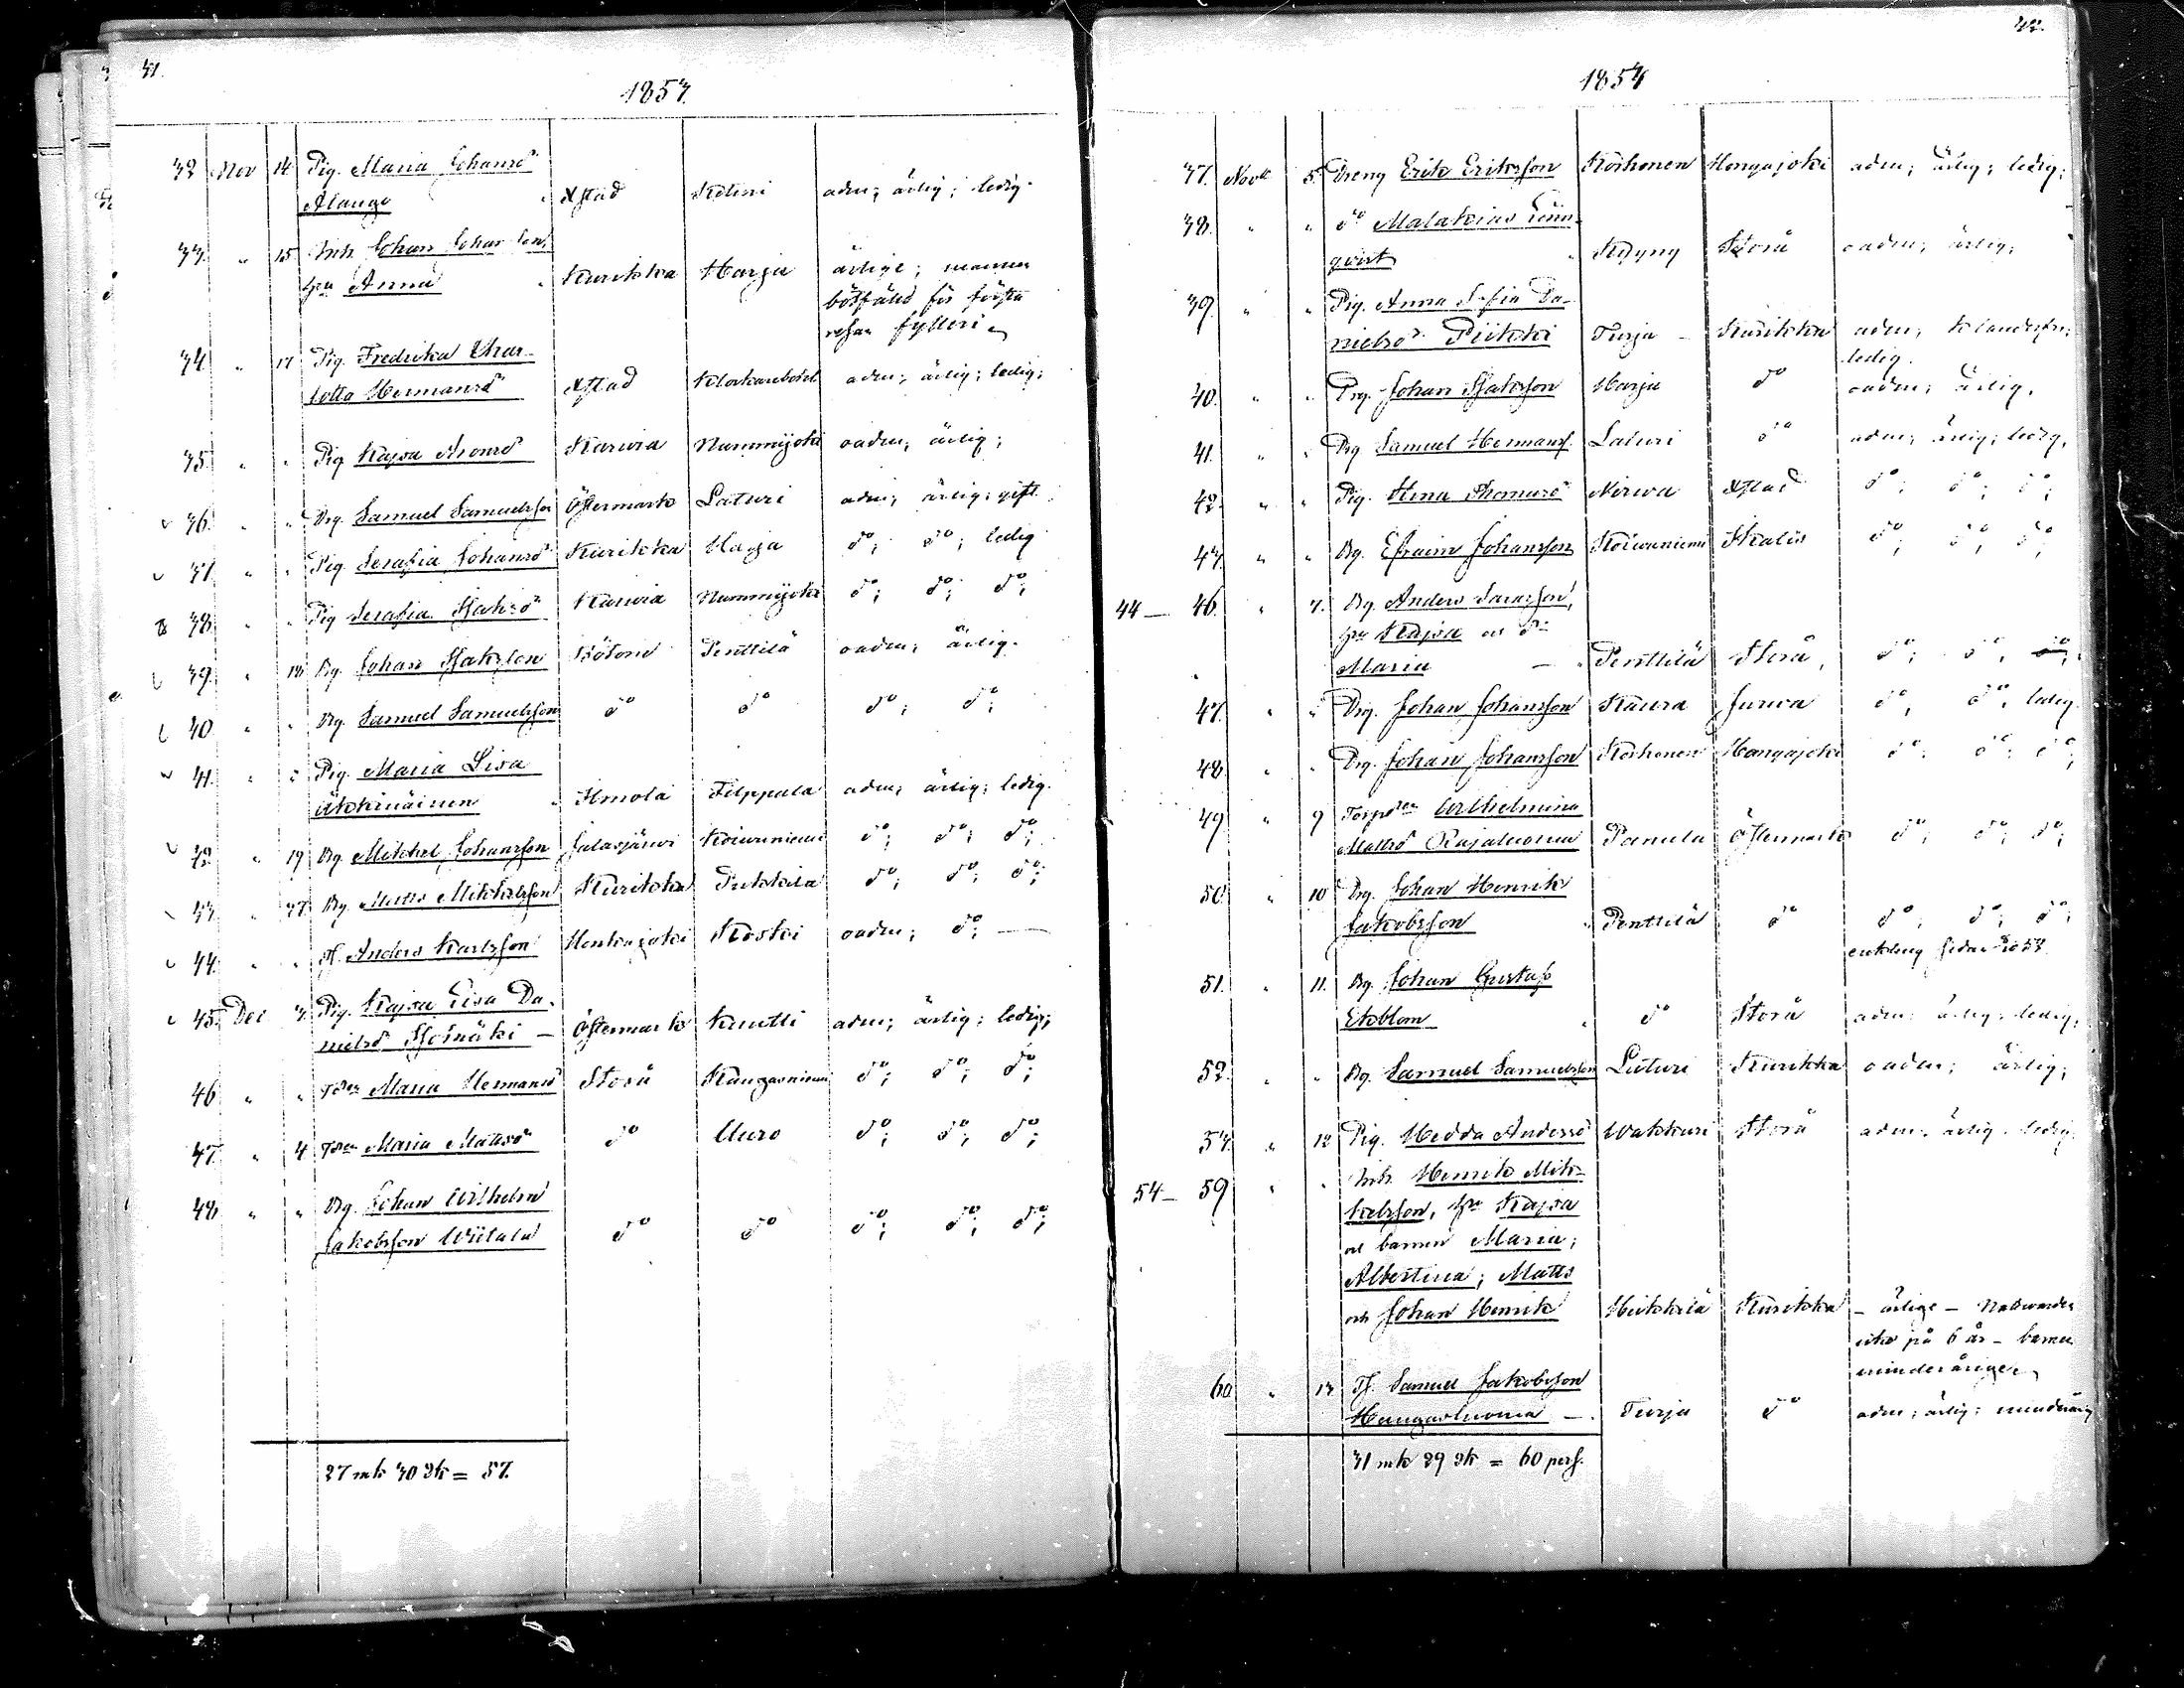 41.
1857.
32 Nov 14 Pig. Maria Johansdr
Alango Xstad Keturi adm; ärlig; ledig.
33. " 15 Inh. Johan Johansson,
hu Anna Kurikka Harja ärlige; mannen
bötfälld för första
resan fylleri
34. " 17 Pig. Fredrika Char-
lotta Hermansdr Xstad Klockarebohl adm; ärlig; ledig;
35. " " Pig Kajsa Aronsdr Karvia Nummijoki oadm; ärlig;
36. " " Drg. Samuel Samuelsson Östermark Laturi adm; ärlig; gift.
37. " " Pig. Serafia Johansdr Kurikka Harja do; do; ledig
38. " " Pig Serafia Isaksdr Karvia Nummijoki do; do; do;
39. " 18 Drg. Johan Isaksson Bötom Penttilä oadm; ärlig.
40. " " Drg. Samuel Samuelsson do do do; do;
41. " " Pig. Maria Lisa
Äkkinäinen Ilmola Filppula adm; ärlig; ledig.
42. " 19 Drg. Mikkel Johansson Jalasjärvi Koivuniemi do; do; do;
43. " 27. Drg. Matts Mikkelsson Kurikka Pukkila do; do; do;
44. " " Tf. Anders Karlsson Honkajoki Koski oadm; do; —
45. Dec 3. Pig. Kajsa Lisa Da-
nielsdr Isomäki — Östermark Knutti adm; ärlig; ledig;
46. " " Maria Hermansdr Storå Kangasniemi do; do; do;
47. " 4 Maria Mattsdr do Uuro do; do; do;
48. " " Drg. Johan Wilhelm
Jakobsson Wiitala do do do; do; do;
27 mk 30 qk = 57.
42.
1857
37. Novbr 5. Dreng Erik Eriksson Korhonen Hongajoki adm; ärlig; ledig;
38. " " do Malakias Lönn-
qvist Kyyny Storå oadm; ärlig;
39. " " Pig. Anna Sofia Da-
nielsdr Piikki Turja — Kurikka adm;
ledig.
40. " " Drg. Johan Isaksson Harja do oadm; ärlig.
41. " " Drg Samuel Hermanss. Laturi do adm; ärlig; ledig.
42. " " Pig. Stina Thomasdr Nirwa Xstad do; do; do;
43. " " Drg. Efraim Johansson Koivuniemi Ikalis do; do; do;
44 — 46. " 7. Drg. Anders
hu Kajsa o dr
Maria — Penttilä Storå, do; do, do;
47. " " Drg. Johan Johansson Kaura Jurva do, do, ledig.
48. " " Drg. Johan Johansson Korhonen Hongajoki do; do; do;
49 " 9 Wilhelmina
Mattsdr Rajaluoma Panula Östermark do; do; do;
50. " 10 Drg. Johan Henrik
Jakobsson Penttilä do do; do; do;
enkling sedan 1853
51. " 11. Drg. Johan Gustaf
Ekblom do Storå adm; ärlig; ledig;
52. " " Drg. Samuel Samuelsson Laturi Kurikka oadm; ärlig;
53. " 12 Pig. Hedda Andersdr Wakkuri Storå adm. ärlig. ledig.
54 — 59 " " Inh. Henrik Mik-
kelsson, hu Kajsa
och barnen Maria;
Albertina; Matts
och Johan Henrik Heikkilä Kurikka — ärlige — Nattvarden
icke på 6 år — barnen
minderåriga
60. " 13 Tf. Samuel Jakobsson
Hangasluoma — Turja do adm; ärlig; minderårig
31 mk 29 qk = 60 pers.